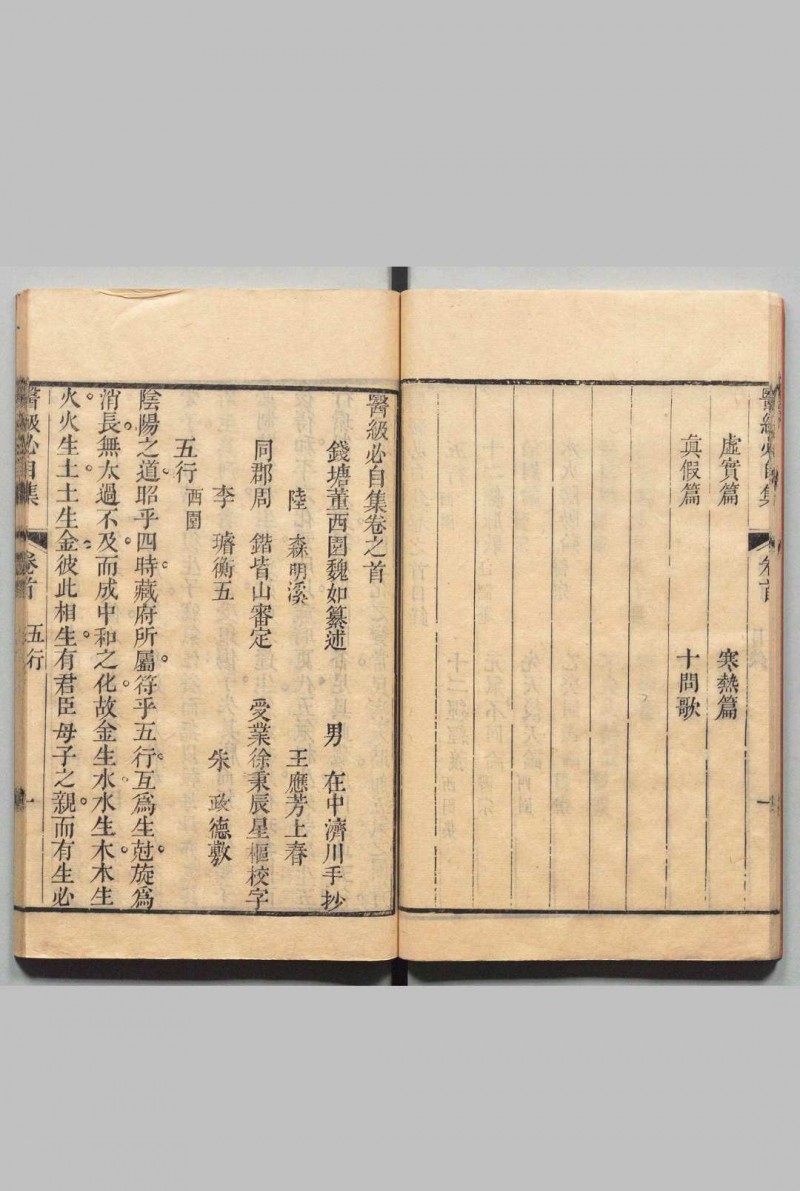 醫級必自集 卷首 一
虛實篇 寒熱篇
真假篇 十問歌
醫級必自集卷之首
錢塘董西園魏如纂述 男 在中濟川手抄
陸 森明溪 王應芳上春
同郡周 鍇皆山審定 受業徐秉辰星樞校字
李 瑃衡五 朱 政德敷
五行 西園
陰陽之道昭乎四時藏府所屬符乎五行互爲生尅旋爲
消長無太過不及而成中和之化故金生水水生木木生
火火生土土生金彼此相生有君臣母子之親而有生必
醫級必自集 卷首 五行 一